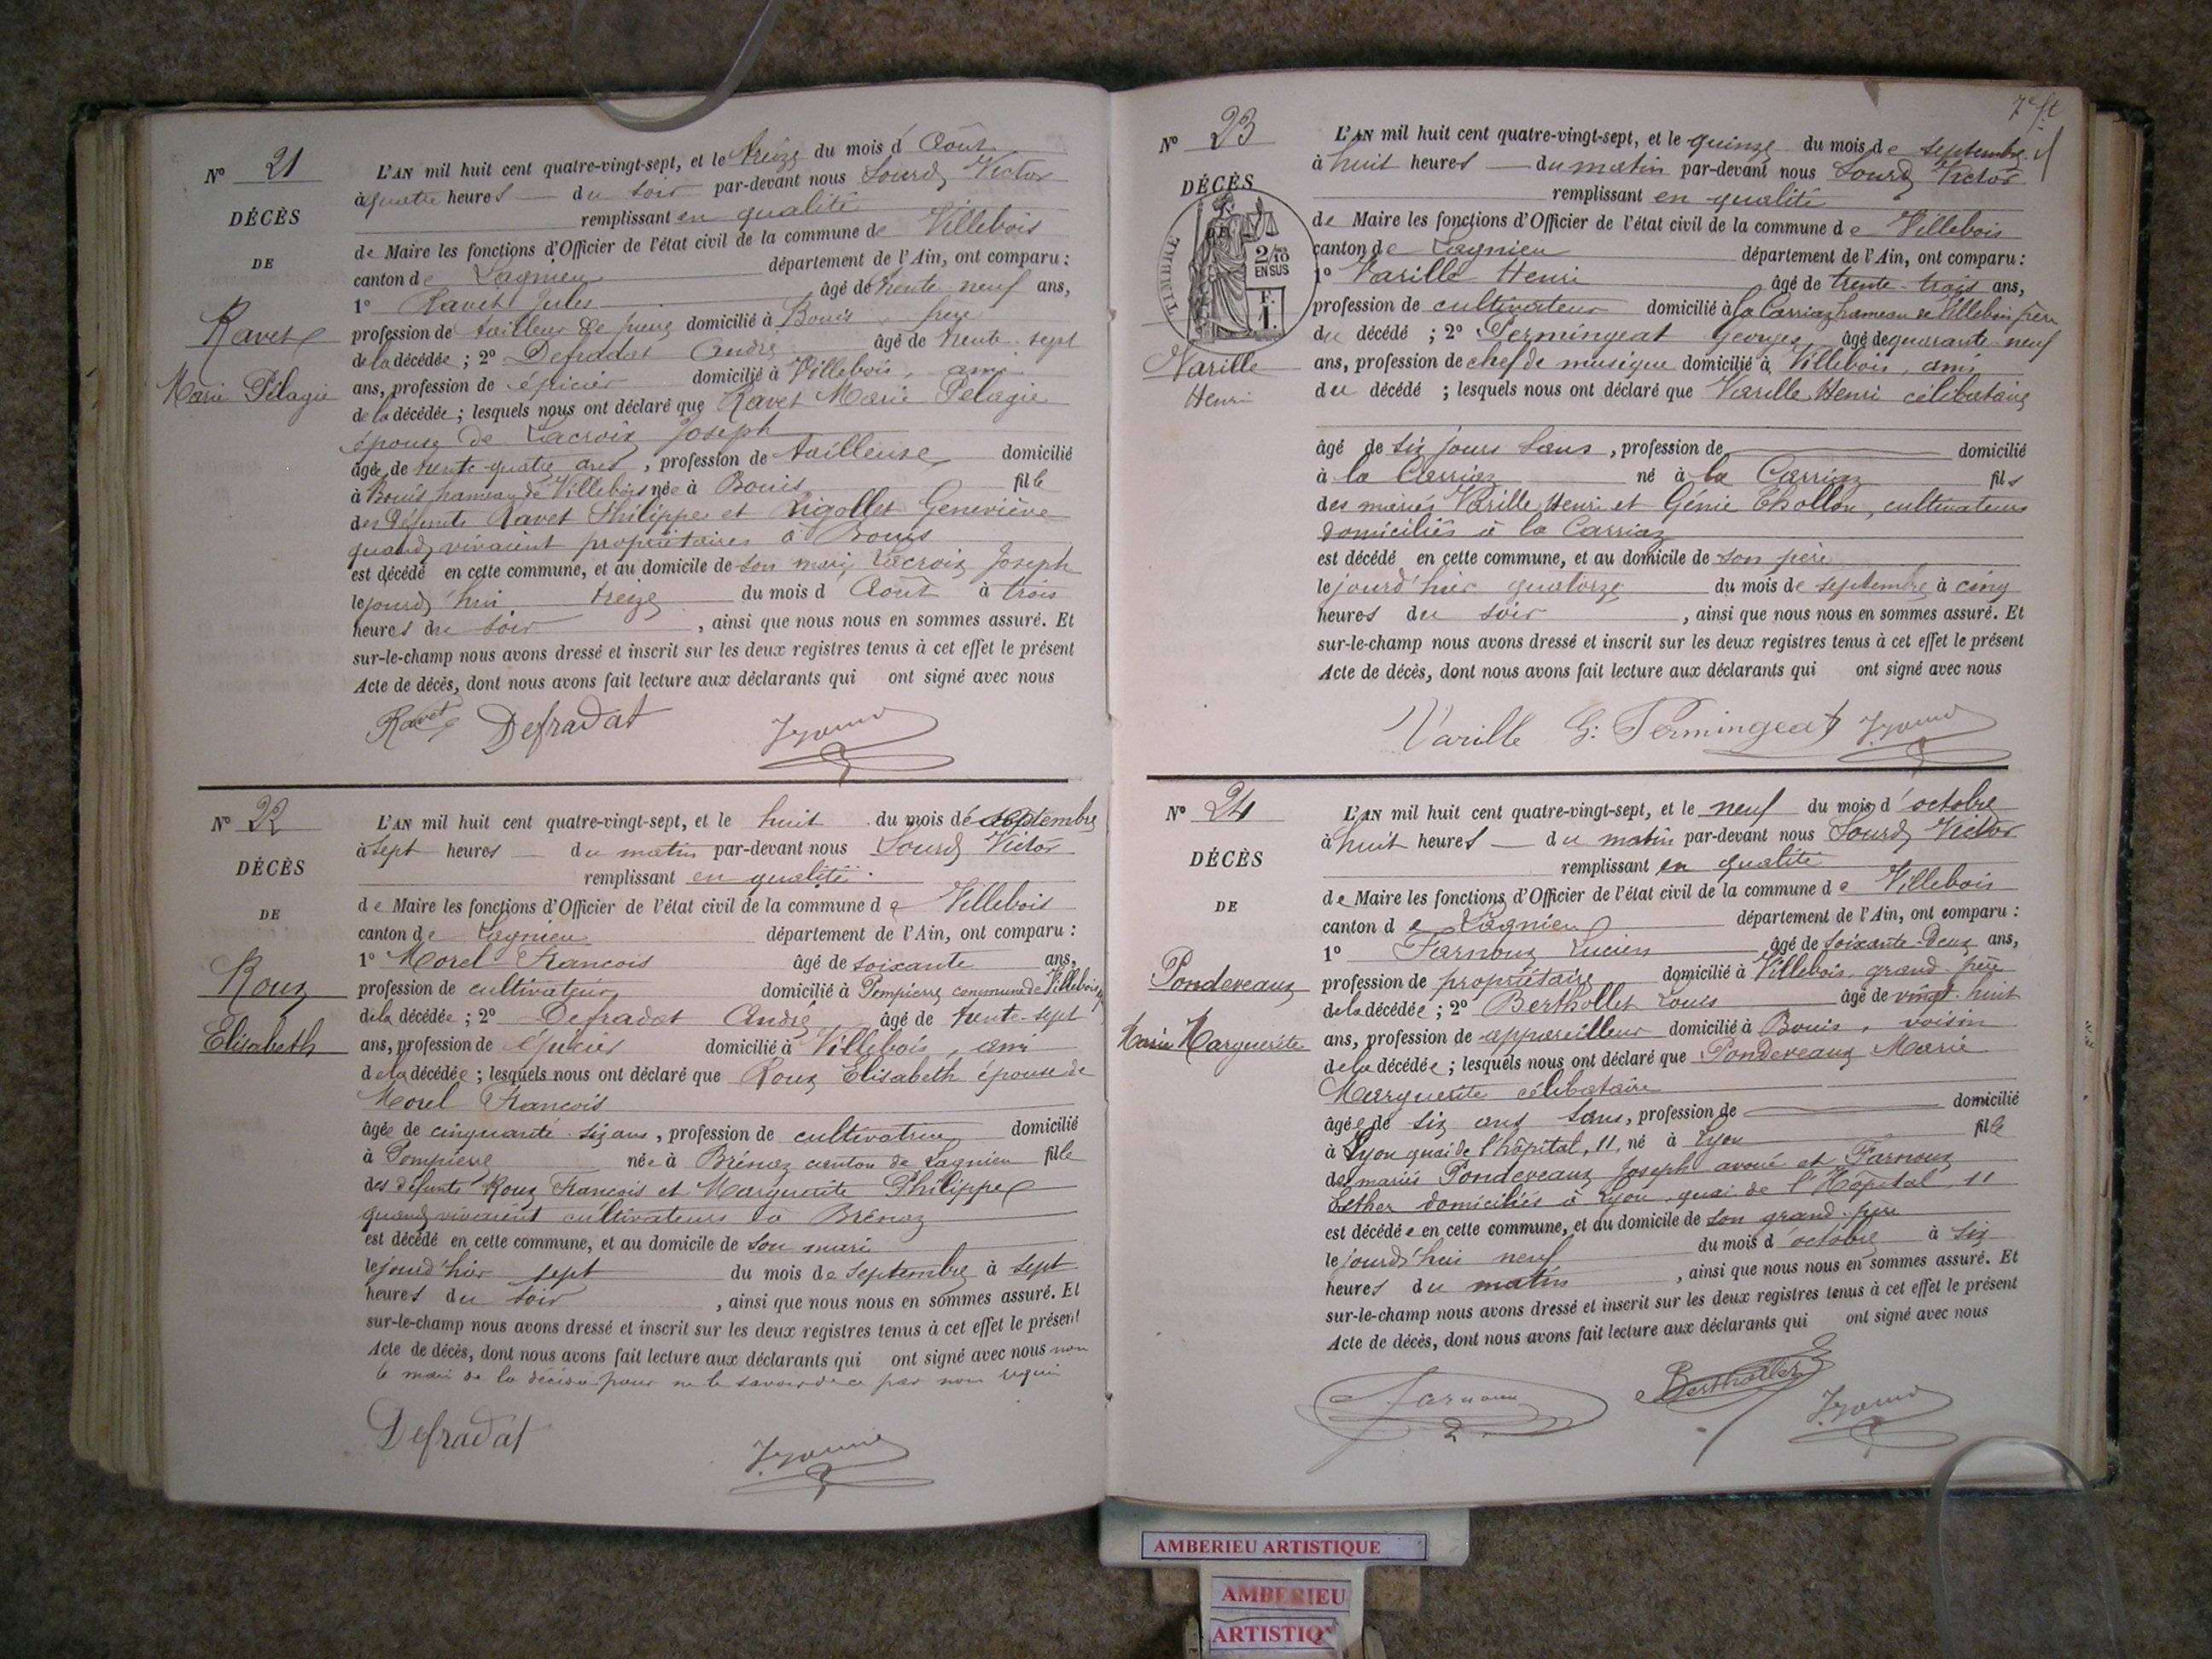 N° 21
DÉCÈS
DE
Ravet
Marie Pélagie
L'AN mil huit cent quatre-vingt-sept, et le treize du mois d'Août
à quatre heures du soir par-devant nous Sourd Victor
remplissant en qualité
de Maire les fonctions d'Officier de l'état civil de la commune de Villebois
canton de Lagnieu département de l'Ain, ont comparu :
1° Ravet Jules âgé de trente neuf ans,
profession de tailleur de pierre domicilié à Bouis frère
de la décédée ; 2° Defradat André âgé de trente-sept
ans, profession de épicier domicilié à Villebois, ami
de la décédée ; lesquels nous ont déclaré que Ravet Marie Pélagie
épouse de Lacroix Joseph
âgée de trente-quatre ans, profession de tailleuse domicilié
à Bouis hameau de Villebois née à Bouis fille
des défunts Ravet Philippe et Rigollet Geneviève
quand vivaient propriétaires à Bouis
est décédé en cette commune, et au domicile de son mari Lacroix Joseph
le jourd'hui treize du mois d Août à trois
heures du soir, ainsi que nous nous en sommes assuré. Et
sur-le-champ nous avons dressé et inscrit sur les deux registres tenus à cet effet le présent
Acte de décès, dont nous avons fait lecture aux déclarants qui ont signé avec nous
Ravet Defradat
N° 22
DÉCÈS
DE
Roux
Elisabeth
L'AN mil huit cent quatre-vingt-sept, et le huit du mois de septembre
à sept heures du matin par-devant nous Sourd Victor
remplissant en qualité
de Maire les fonctions d'Officier de l'état civil de la commune de Villebois
canton de Lagnieu département de l'Ain, ont comparu :
1° Morel Francois âgé de soixante ans,
profession de cultivateur domicilié à Pompierre commune de Villebois
de la décédée ; 2° Defradat André âgé de trente-sept
ans, profession de épicier domicilié à Villebois, ami
de la décédée ; lesquels nous ont déclaré que Roux Elisabeth épouse de
Morel Francois
âgée de cinquante-six ans, profession de cultivatrice domicilié
à Pompierre née à Brénaz canton de Lagnieu fille
des défunts Roux Francois et Marguerite Philippe
quand vivaient cultivateurs à Brénaz
est décédé en cette commune, et au domicile de son mari
le jourd'hier sept du mois de septembre à sept
heures du soir, ainsi que nous nous en sommes assuré. Et
sur-le-champ nous avons dressé et inscrit sur les deux registres tenus à cet effet le présent
Acte de décès, dont nous avons fait lecture aux déclarants qui ont signé avec nous non
le mari de la décédée pour ne le savoir de ce par nous requis
Defradat
7e ft
N° 23
DÉCÈS
TIMBRE
2/10
EN SUS
Varille
Henri
L'AN mil huit cent quatre-vingt-sept, et le quinze du mois de septembre
à huit heures du matin par-devant nous Sourd Victor
remplissant en qualité
de Maire les fonctions d'Officier de l'état civil de la commune de Villebois
canton de Lagnieu département de l'Ain, ont comparu :
1° Varille Henri âgé de trente-trois ans,
profession de cultivateur domicilié à la Carriaz hameau de Villebois père
du décédé ; 2° Permingeat Georges âgé de quarante-neuf
ans, profession de chef de musique domicilié à Villebois, ami
du décédé ; lesquels nous ont déclaré que Varille Henri célibataire
âgé de six jours sans, profession de domicilié
à la Carriaz né à la Carriaz fils
des mariés Varille Henri et Génie Chollon, cultivateurs
domiciliés à la Carriaz
est décédé en cette commune, et au domicile de son père
le jourd'hier quatorze du mois de septembre à cinq
heures du soir, ainsi que nous nous en sommes assuré. Et
sur-le-champ nous avons dressé et inscrit sur les deux registres tenus à cet effet le présent
Acte de décès, dont nous avons fait lecture aux déclarants qui ont signé avec nous
Varille G: Permingeat
N° 24
DÉCÈS
DE
Pondeveaux
Marie Marguerite
L'AN mil huit cent quatre-vingt-sept, et le neuf du mois d'octobre
à huit heures du matin par-devant nous Sourd Victor
remplissant en qualité
de Maire les fonctions d'Officier de l'état civil de la commune de Villebois
canton de Lagnieu département de l'Ain, ont comparu :
1° Farnoux Lucien âgé de soixante-deux ans,
profession de propriétaire domicilié à Villebois, grand-père
de la décédée ; 2° Berthollet Louis âgé de vingt-huit
ans, profession de appareilleur domicilié à Bouis, voisin
de la décédée ; lesquels nous ont déclaré que Pondeveaux Marie
Marguerite célibataire
âgée de six ans sans, profession de domicilié
à Lyon quai de l'hôpital, 11, né à Lyon fille
des mariés Pondeveaux Joseph avoué et Farnoux
Esther domiciliés à Lyon, quai de l'Hôpital, 11
est décédée en cette commune, et au domicile de son grand-père
le jourd'hui neuf du mois d'octobre à six
heures du matin, ainsi que nous nous en sommes assuré. Et
sur-le-champ nous avons dressé et inscrit sur les deux registres tenus à cet effet le présent
Acte de décès, dont nous avons fait lecture aux déclarants qui ont signé avec nous
Farnoux Berthollet
AMBERIEU ARTISTIQUE
AMBERIEU
ARTISTIQ